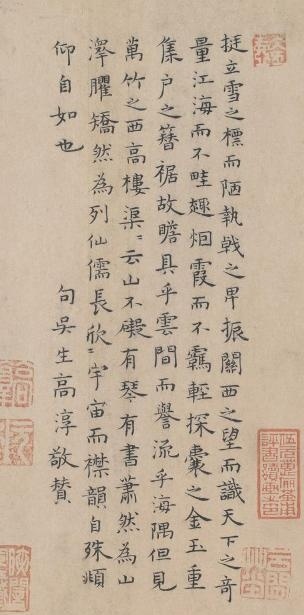 挺立雪之標而陋執戟之卑振關西之望而識天下之奇
量江海而不畦趣烟霞而不羈輕探囊之金玉重
集戶之簪裾故瞻具乎雲間而譽流乎海隅但見
萬竹之西高樓渠〻云山不礙有琴有書蕭然為山
澤臞矯然為列仙儒長欣〻宇宙而襟韻自殊頫
仰自如也
句吳生高淳敬賛